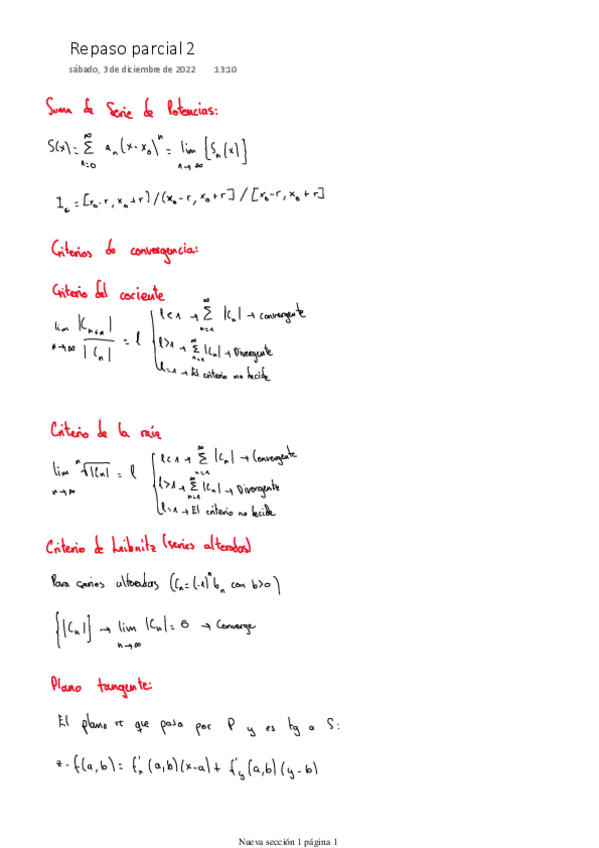 Repaso parcial 2
sábado, 3 de diciembre de 2022 13:10
Suma de Serie de Potencias:
S(x) = ∑_{n=0}^{∞} a_n (x-x_0)^n = lim_{n→∞} {S_n(x)}
I_c = [x_0-r, x_0+r) / (x_0-r, x_0+r] / [x_0-r, x_0+r]
Criterios de convergencia:
Criterio del cociente
lim_{n→∞} |C_{n+1}| / |C_n| = l { l<1 → ∑_{n=1}^{∞} |C_n| → convergente
l>1 → ∑_{n=1}^{∞} |C_n| → Divergente
l=1 → El criterio no decide
Criterio de la raíz
lim_{n→∞} ⁿ√|C_n| = l { l<1 → ∑_{n=1}^{∞} |C_n| → Convergente
l>1 → ∑_{n=1}^{∞} |C_n| → Divergente
l=1 → El criterio no decide
Criterio de Leibnitz (series alteradas)
Para series alteradas (C_n = (-1)^n b_n con b>0)
{|C_n|} → lim_{n→∞} |C_n| = 0 → Converge
Plano tangente:
El plano π que pasa por P y es tg a S:
z - f(a,b) = f'_x (a,b)(x-a) + f'_y (a,b)(y-b)
Nueva sección 1 página 1